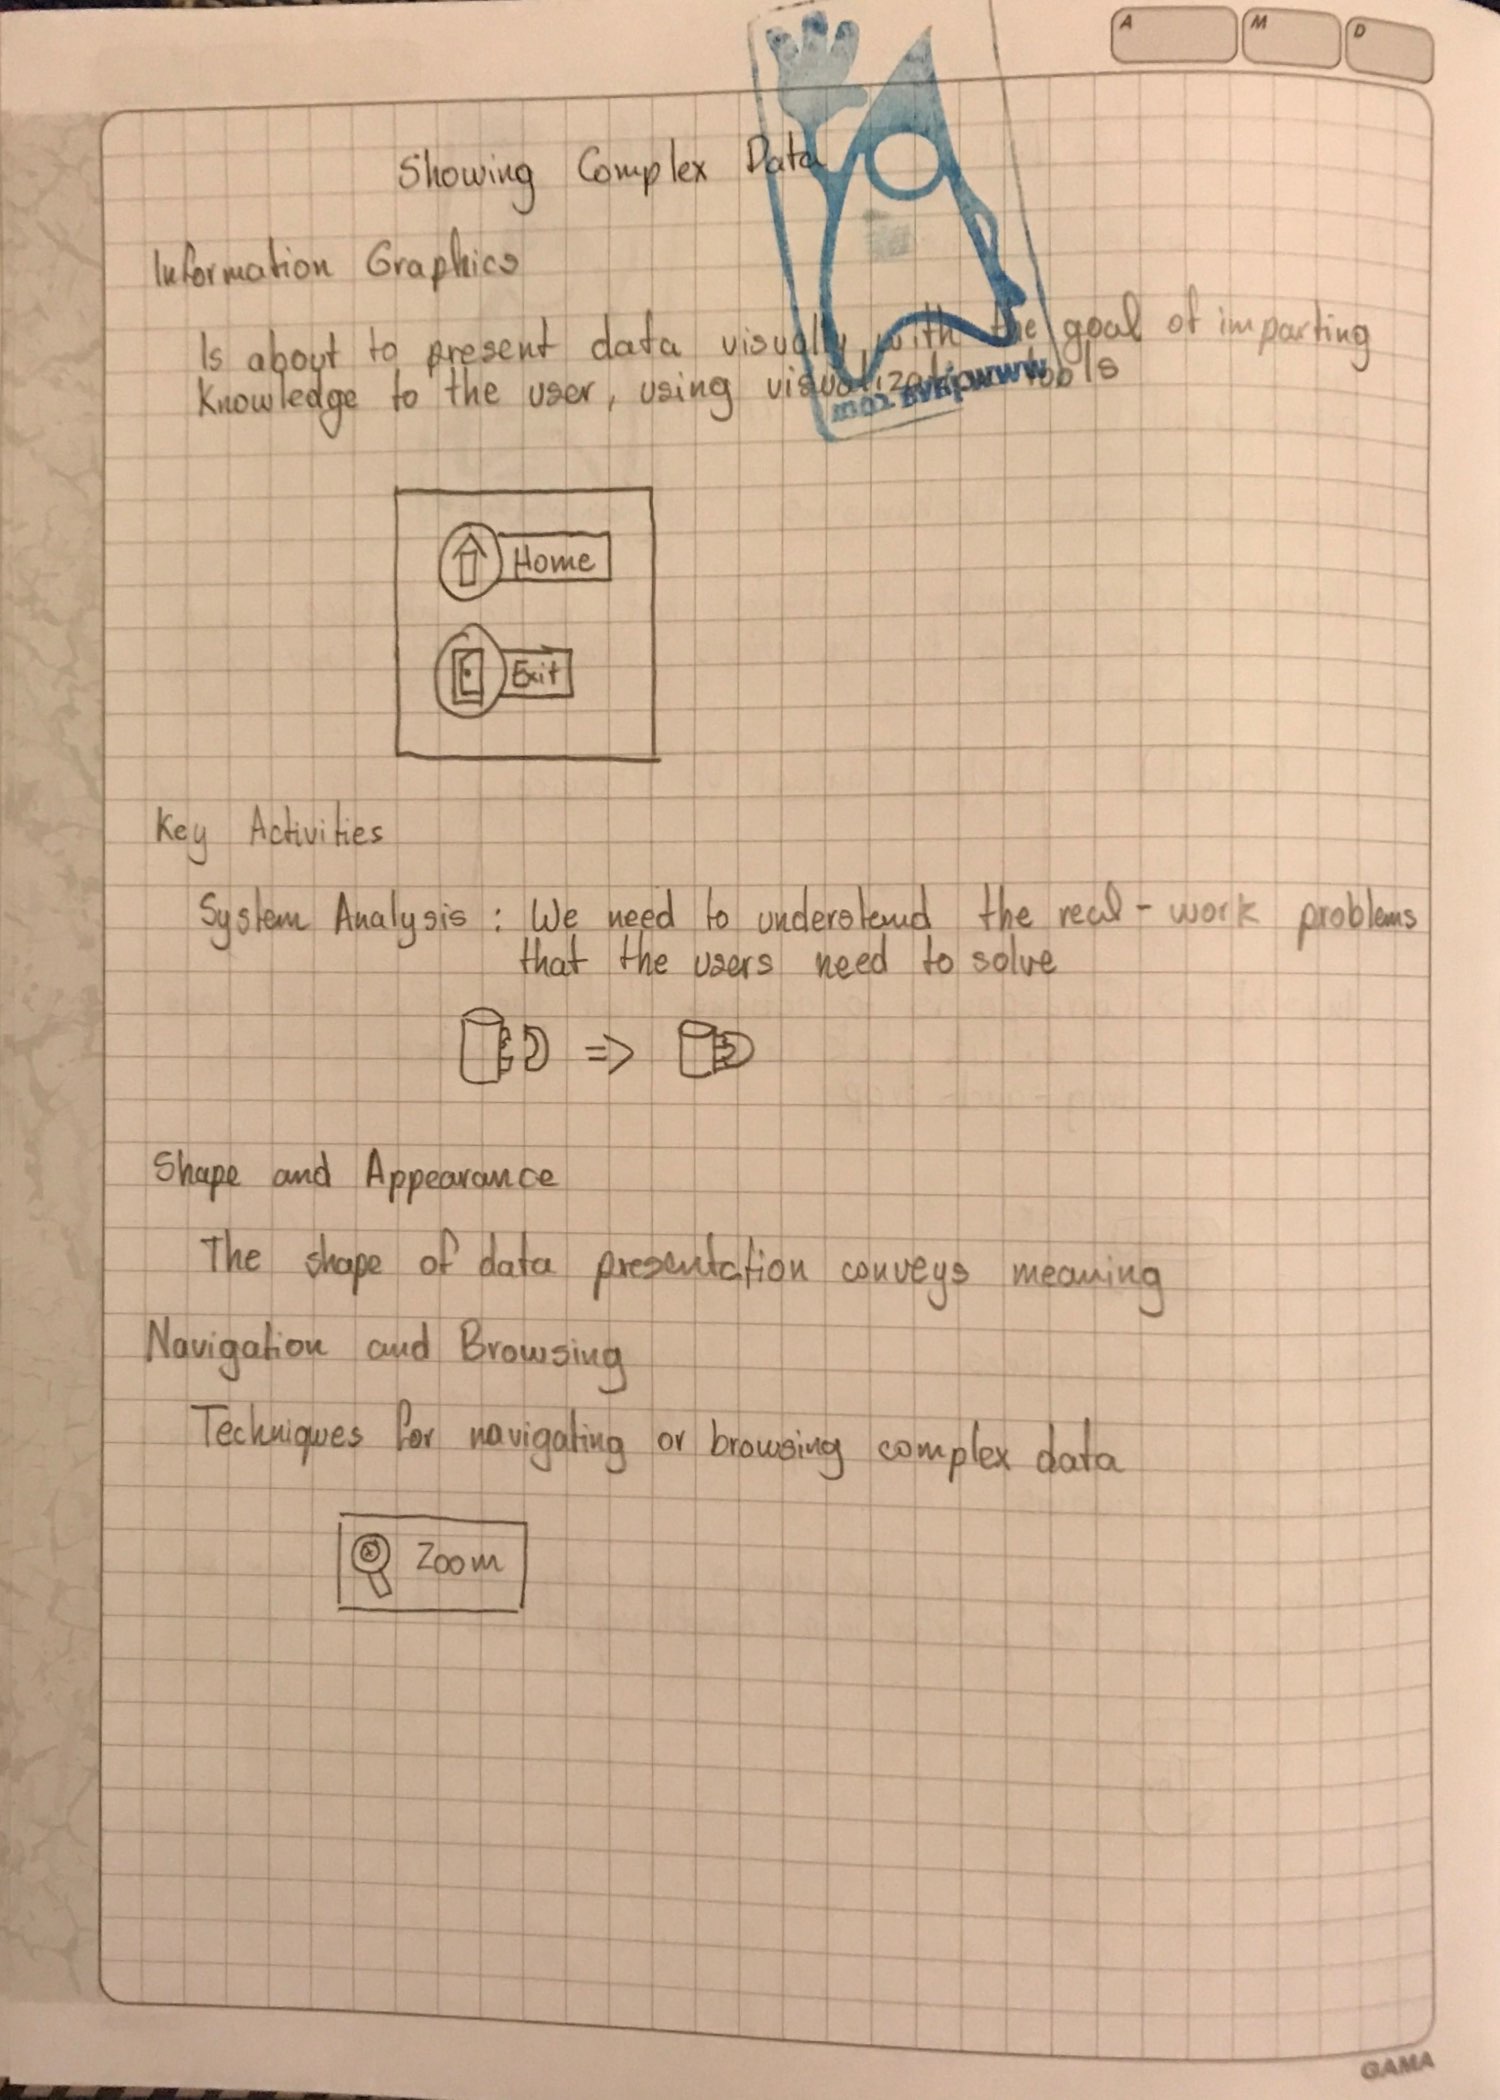 A M D
Showing Complex Data
Information Graphics
Is about to present data visually, with the goal of imparting
Knowledge to the user, using visualization tools
www.java.com
Home
Exit
Key Activities
System Analysis : We need to understand the real-work problems
that the users need to solve
=>
Shape and Appearance
The shape of data presentation conveys meaning
Navigation and Browsing
Techniques for navigating or browsing complex data
Zoom
GAMA